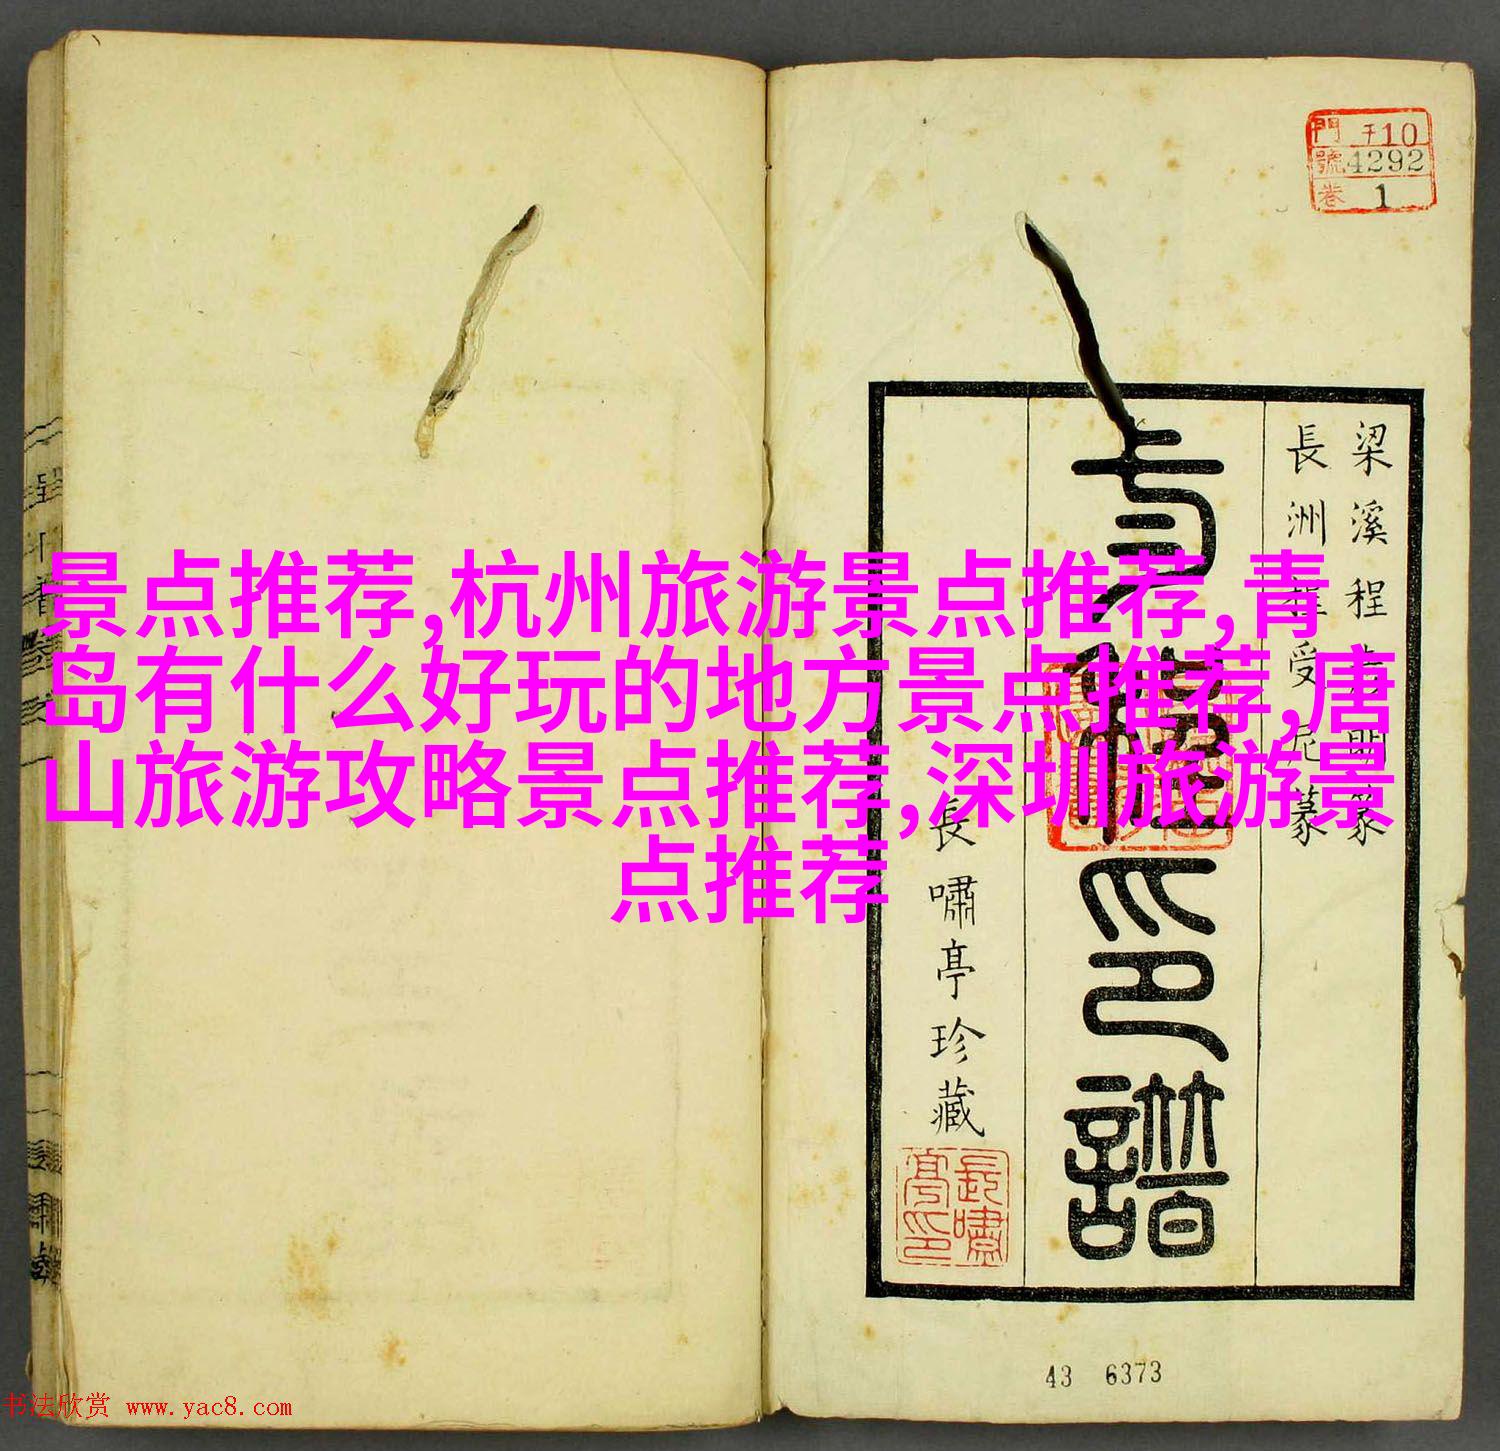 門 于10
號 4292
卷 1
梁溪程
明篆
長洲程受尼篆
印譜
長嘯亭珍藏
長嘯亭印
景点推荐,杭州旅游景点推荐,青
岛有什么好玩的地方景点推荐,唐
山旅游攻略景点推荐,深圳旅游景
点推荐
43 6373
书法欣赏 www.yac8.com